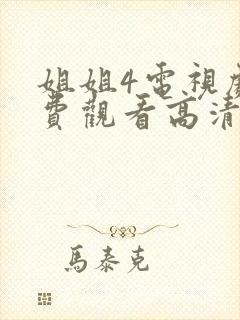 姐姐4電視
費觀看高清
馬泰克